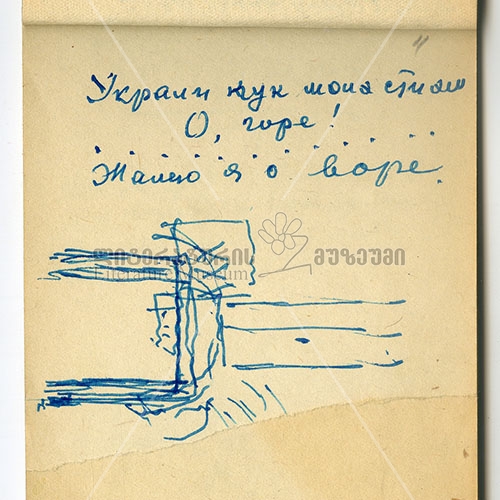 Украли
О, горе!
Жалею я о воре.
ლიტერატურის მუზეუმი
Literature Museum